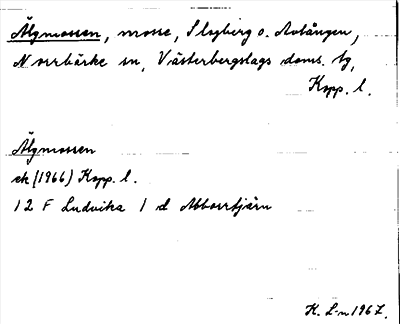 Älgmossen, mosse, Slyberg o. Avlången,
Norrbärke sn, Västerbergslags doms. tg,
Kopp. l.
Älgmossen
ek (1966) Kopp. l.
12 F Ludvika 1 d Abborrtjärn
K. L-n 1967.